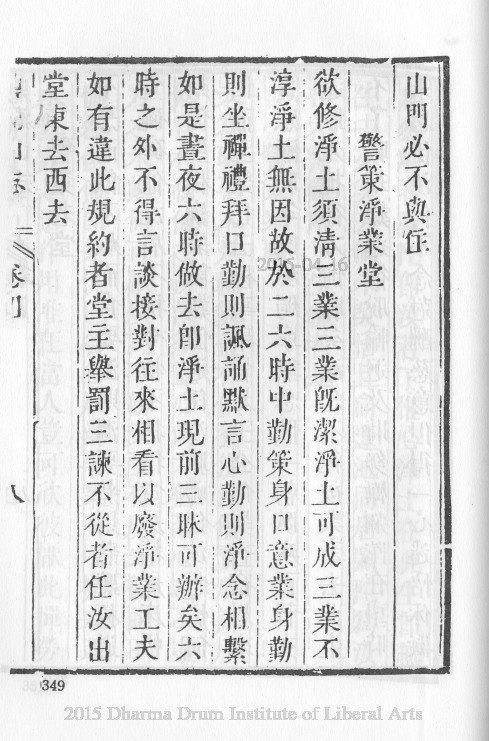 山門必不與住
警策淨業堂
欲修淨土須淸三業三業旣潔淨土可成三業不
淳淨土無因故於二六時中勤策身口意業身勤
則坐禪禮拜口勤則諷誦默言心勤則淨念相繫
如是晝夜六時做去卽淨土現前三昧可辦矣六
時之外不得言談接對往來相看以廢淨業工夫
如有違此規約者堂主舉罰三諫不從者任汝出
堂東去西去
山志
卷
八
349
2015-04-16
2015 Dharma Drum Institute of Liberal Arts